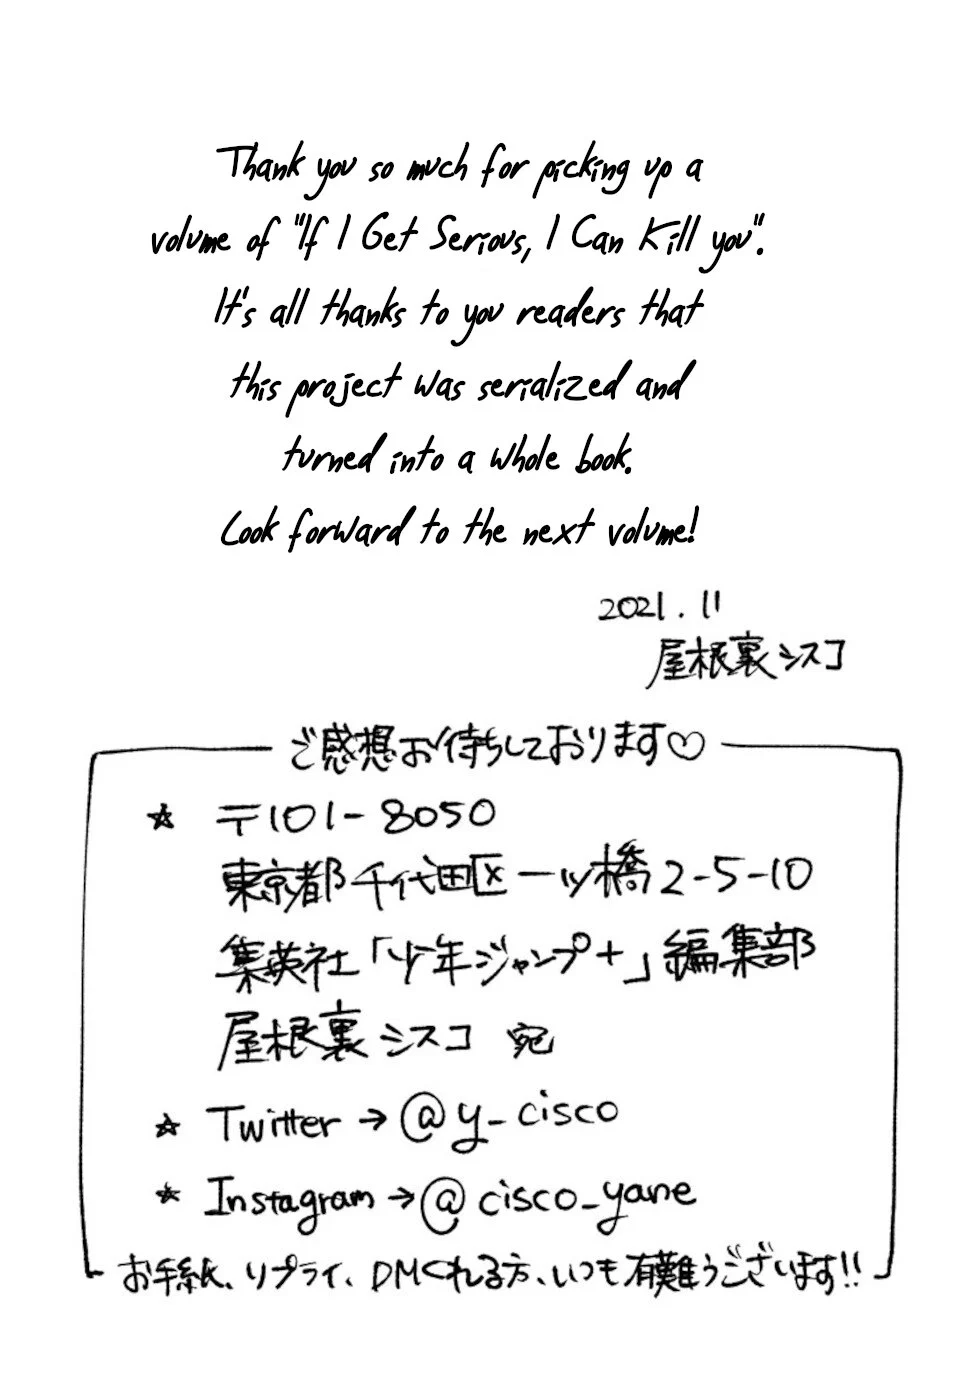 Thank you so much for picking up a
volume of "If I Get Serious, I Can Kill you".
It's all thanks to you readers that
this project was serialized and
turned into a whole book.
Look forward to the next volume!
2021.11
屋根裏シスコ
ご感想お待ちしております♡
☆ 〒101-8050
東京都千代田区一ツ橋2-5-10
集英社「少年ジャンプ+」編集部
屋根裏シスコ 宛
☆ Twitter→@y_cisco
☆ Instagram→@cisco_yane
お手紙、リプライ、DMくれる方、いつも有難うございます!!